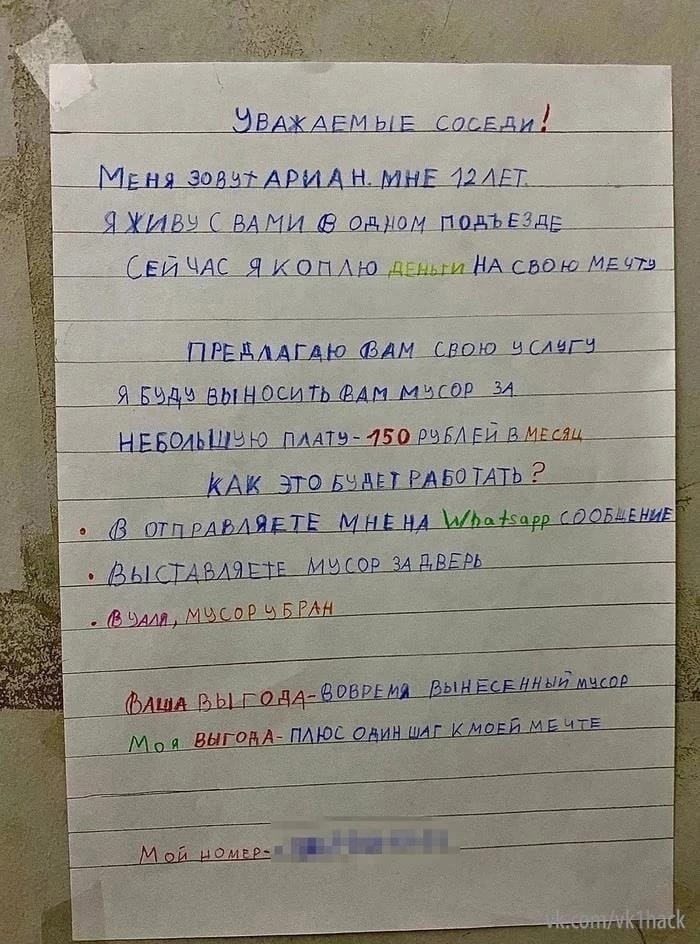 Уважаемые соседи!
Меня зовут Ариан. Мне 12 лет.
Я живу с вами в одном подъезде
Сейчас я коплю деньги на свою мечту
Предлагаю вам свою услугу
Я буду выносить вам мусор за
небольшую плату - 150 рублей в месяц
Как это будет работать?
• В отправляете мне на Whatsapp сообщение
• Выставляете мусор за дверь
• Вуаля, мусор убран
Ваша выгода - вовремя вынесенный мусор
Моя выгода - плюс один шаг к моей мечте
Мой номер-
vk.com/vk1hack